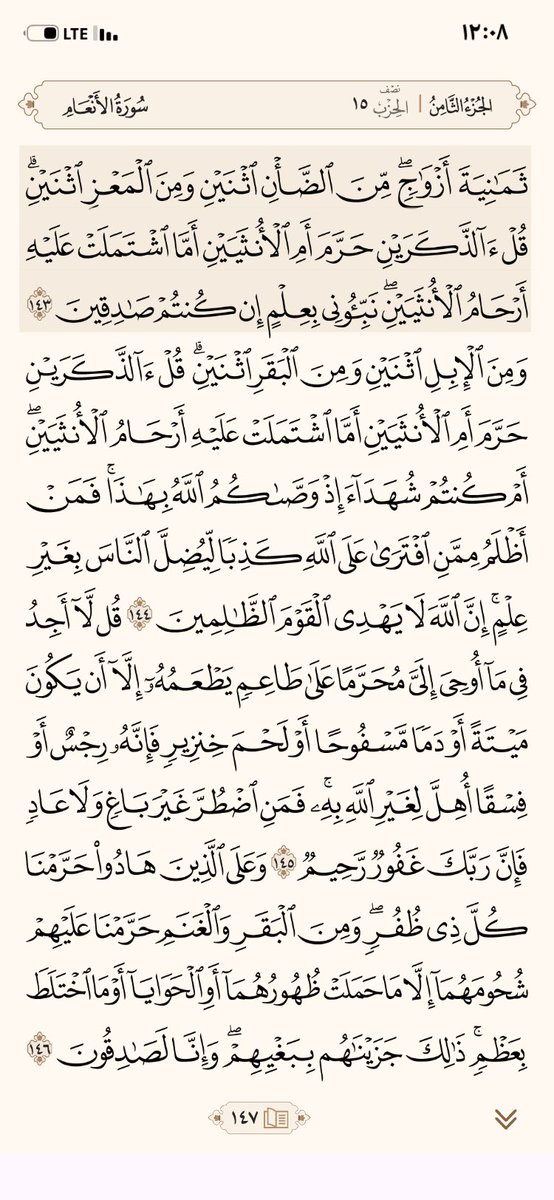 LTE ١٢:٠٨
الجُزْءُ الثَّامِنُ | نِصْف الحِزْب ١٥ سُورَةُ الأَنْعَامِ
ثَمَٰنِيَةَ أَزْوَٰجٖۖ مِّنَ ٱلضَّأۡنِ ٱثۡنَيۡنِ وَمِنَ ٱلۡمَعۡزِ ٱثۡنَيۡنِۗ
قُلۡ ءَآلذَّكَرَيۡنِ حَرَّمَ أَمِ ٱلۡأُنثَيَيۡنِ أَمَّا ٱشۡتَمَلَتۡ عَلَيۡهِ
أَرۡحَامُ ٱلۡأُنثَيَيۡنِۖ نَبِّـُٔونِي بِعِلۡمٍ إِن كُنتُمۡ صَٰدِقِينَ ١٤٣
وَمِنَ ٱلۡإِبِلِ ٱثۡنَيۡنِ وَمِنَ ٱلۡبَقَرِ ٱثۡنَيۡنِۗ قُلۡ ءَآلذَّكَرَيۡنِ
حَرَّمَ أَمِ ٱلۡأُنثَيَيۡنِ أَمَّا ٱشۡتَمَلَتۡ عَلَيۡهِ أَرۡحَامُ ٱلۡأُنثَيَيۡنِۖ
أَمۡ كُنتُمۡ شُهَدَآءَ إِذۡ وَصَّىٰكُمُ ٱللَّهُ بِهَٰذَاۚ فَمَنۡ
أَظۡلَمُ مِمَّنِ ٱفۡتَرَىٰ عَلَى ٱللَّهِ كَذِبٗا لِّيُضِلَّ ٱلنَّاسَ بِغَيۡرِ
عِلۡمٍۚ إِنَّ ٱللَّهَ لَا يَهۡدِي ٱلۡقَوۡمَ ٱلظَّٰلِمِينَ ١٤٤ قُل لَّآ أَجِدُ
فِي مَآ أُوحِيَ إِلَيَّ مُحَرَّمًا عَلَىٰ طَاعِمٖ يَطۡعَمُهُۥٓ إِلَّآ أَن يَكُونَ
مَيۡتَةً أَوۡ دَمٗا مَّسۡفُوحًا أَوۡ لَحۡمَ خِنزِيرٖ فَإِنَّهُۥ رِجۡسٌ أَوۡ
فِسۡقًا أُهِلَّ لِغَيۡرِ ٱللَّهِ بِهِۦۚ فَمَنِ ٱضۡطُرَّ غَيۡرَ بَاغٖ وَلَا عَادٖ
فَإِنَّ رَبَّكَ غَفُورٞ رَّحِيمٞ ١٤٥ وَعَلَى ٱلَّذِينَ هَادُواْ حَرَّمۡنَا
كُلَّ ذِي ظُفُرٖۖ وَمِنَ ٱلۡبَقَرِ وَٱلۡغَنَمِ حَرَّمۡنَا عَلَيۡهِمۡ
شُحُومَهُمَآ إِلَّا مَا حَمَلَتۡ ظُهُورُهُمَآ أَوِ ٱلۡحَوَايَآ أَوۡ مَا ٱخۡتَلَطَ
بِعَظۡمٖۚ ذَٰلِكَ جَزَيۡنَٰهُم بِبَغۡيِهِمۡۖ وَإِنَّا لَصَٰدِقُونَ ١٤٦
١٤٧